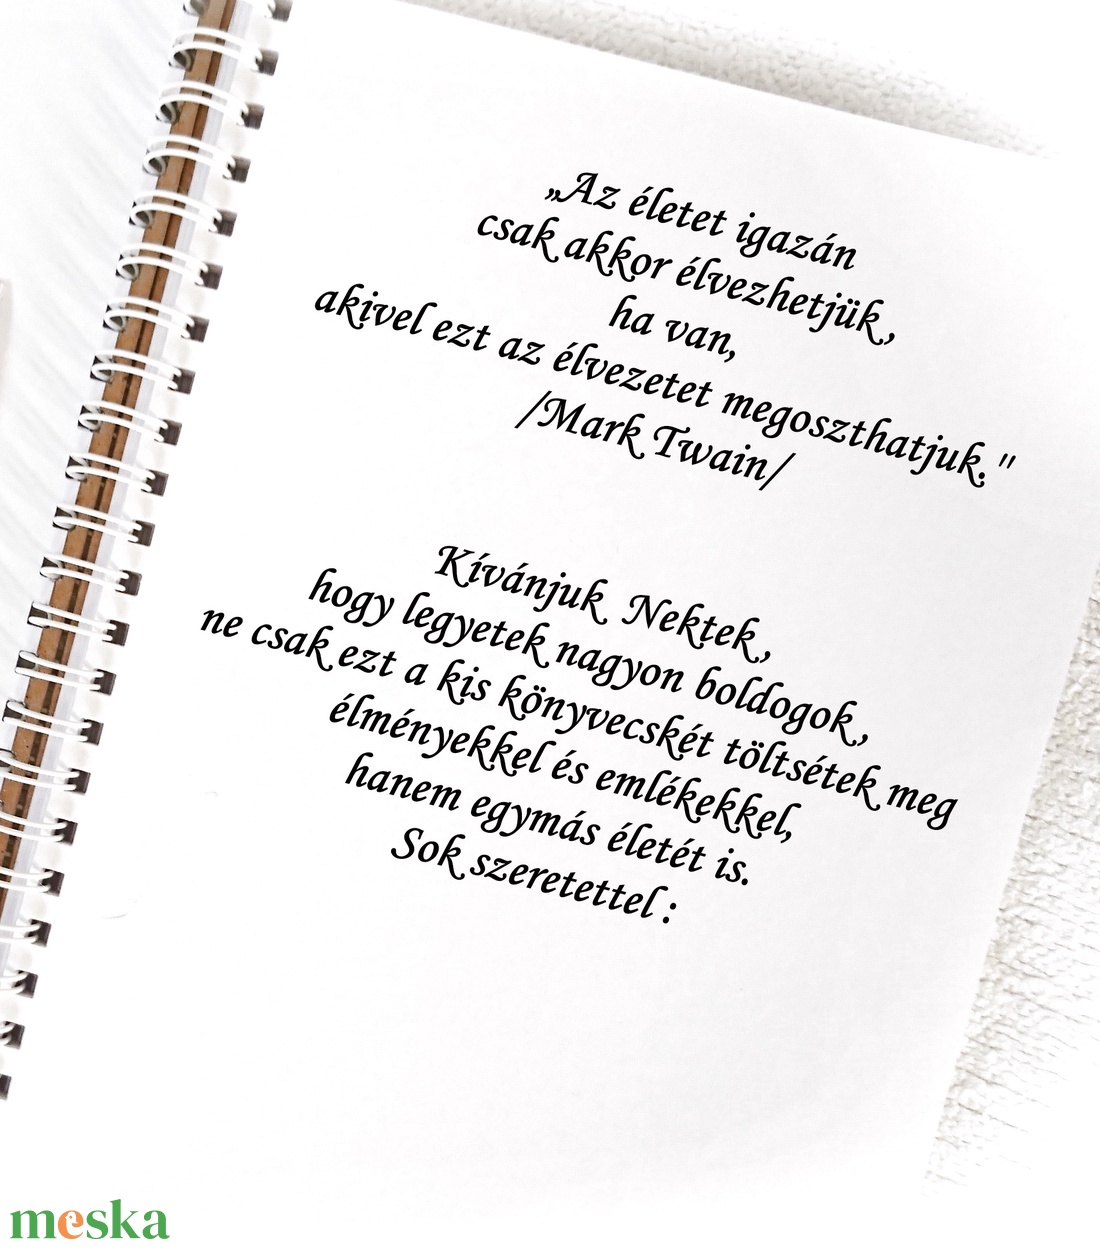 „Az életet igazán
csak akkor élvezhetjük,
ha van,
akivel ezt az élvezetet megoszthatjuk."
/Mark Twain/
Kívánjuk Nektek,
hogy legyetek nagyon boldogok,
ne csak ezt a kis könyvecskét töltsétek meg
élményekkel és emlékekkel,
hanem egymás életét is.
Sok szeretettel :
meska